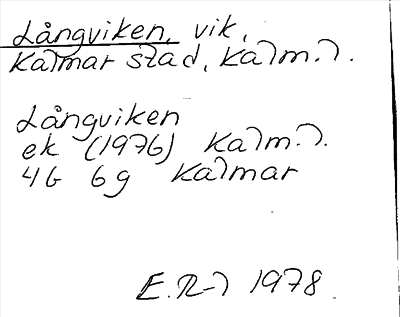 Långviken, vik,
Kalmar stad, Kalm. l.
Långviken
ek (1976) Kalm. l.
4G 6g Kalmar
E. R-l 1978.